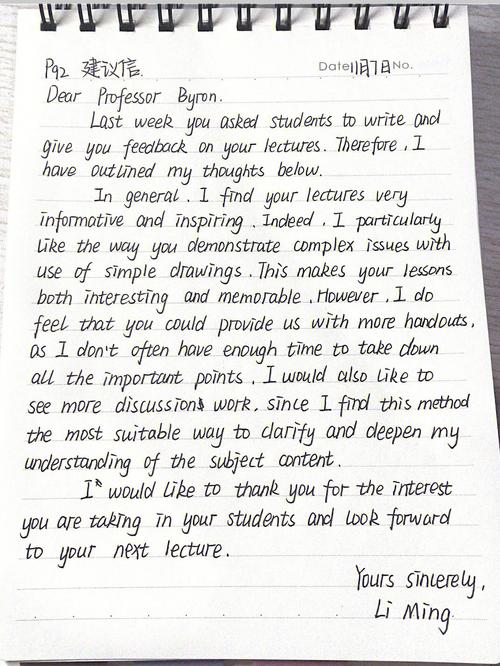 P92 建议信. Date 11月7日 No.
Dear Professor Byron.
Last week you asked students to write and
give you feedback on your lectures. Therefore, I
have outlined my thoughts below.
In general, I find your lectures very
informative and inspiring. Indeed, I particularly
like the way you demonstrate complex issues with
use of simple drawings. This makes your lessons
both interesting and memorable. However, I do
feel that you could provide us with more handouts,
as I don't often have enough time to take down
all the important points. I would also like to
see more discussions work, since I find this method
the most suitable way to clarify and deepen my
understanding of the subject content.
I would like to thank you for the interest
you are taking in your students and look forward
to your next lecture.
Yours sincerely,
Li Ming